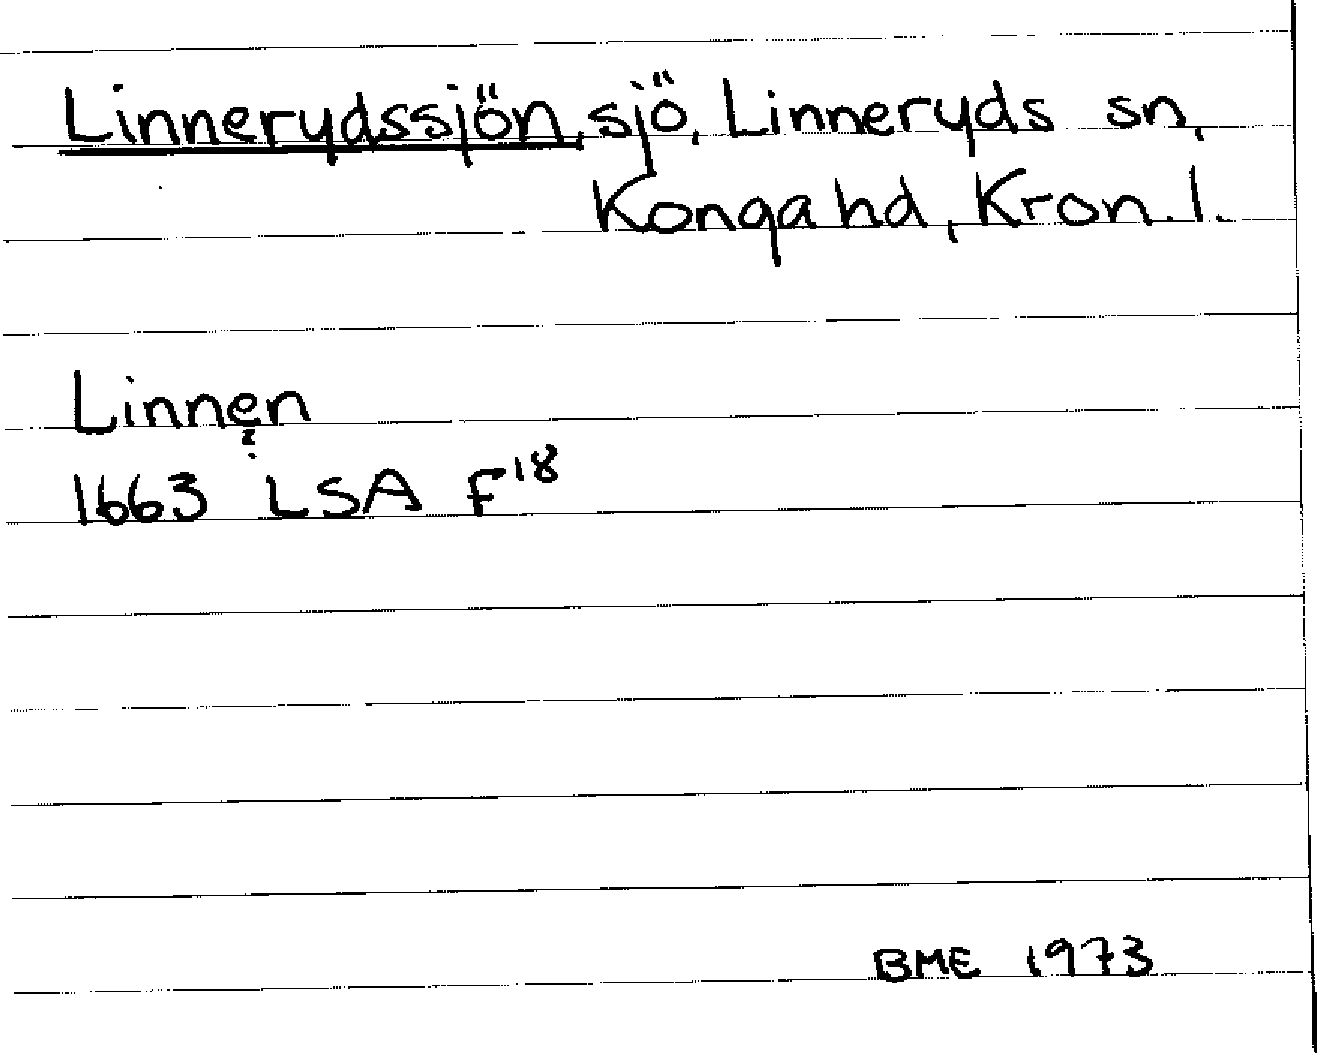 Linnerydssjön, sjö, Linneryds sn,
Konga hd, Kron. l.
Linnen
?
1663 LSA F18
BME 1973